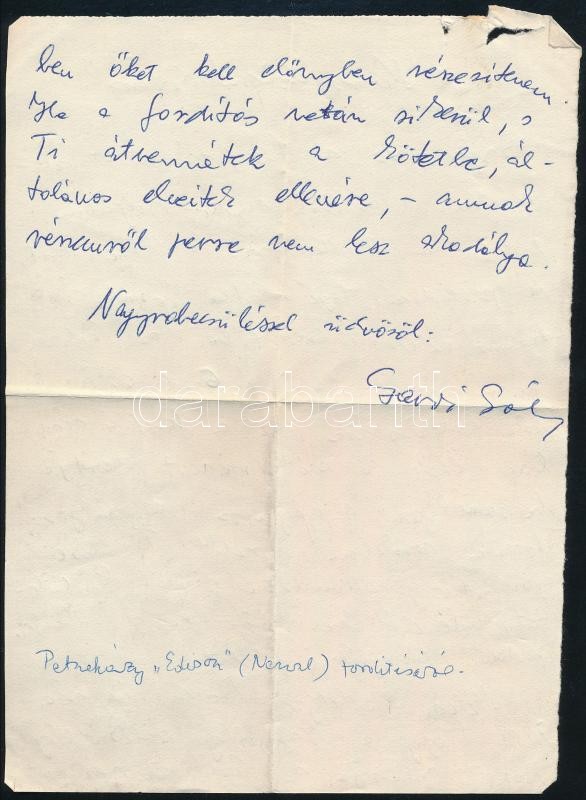 ben őket kell előnyben részesítenem.
Ha a fordítás netán sikerül, s
Ti átvennétek a kötetbe, ál-
talános elveitek ellenére, – annak
részemről persze nem lesz akadálya.
Nagyrabecsüléssel üdvözöl:
Pál
darabanth
Petneházy „Edison" (Nerval) fordításáról.